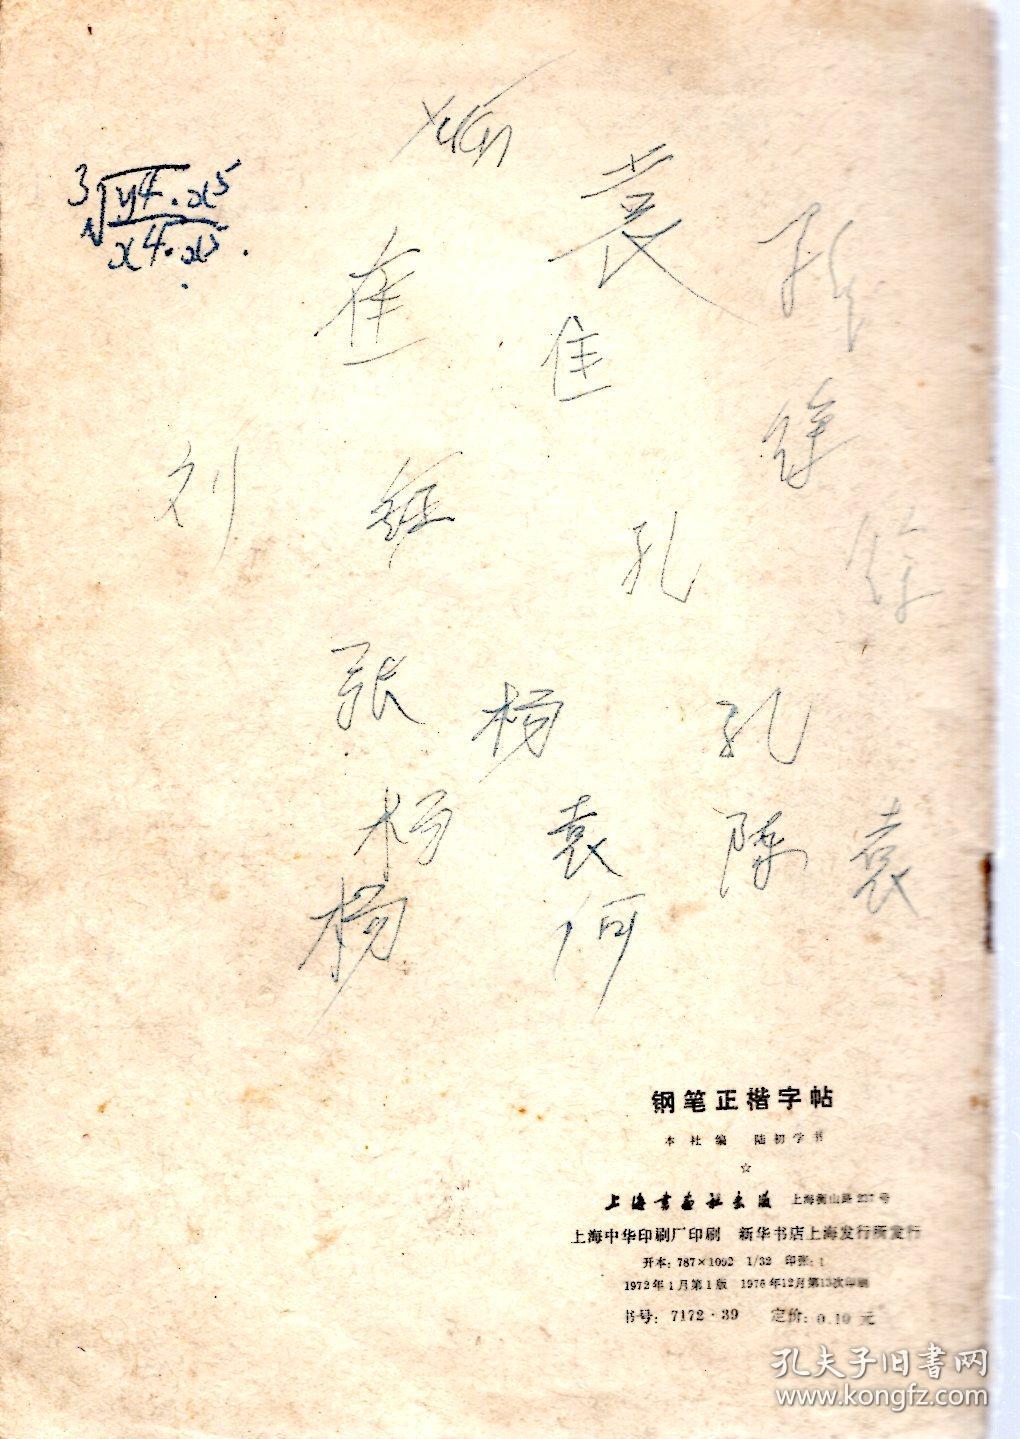 3√ y4·x5 / x4·x5.
袁
崔
孙
佳
徐
刘
钰
孔
徐
张
杨
孔
杨
袁
陈
袁
杨
何
钢笔正楷字帖
本社编 陆初学书
☆
上海书画社出版 上海衡山路237号
上海中华印刷厂印刷 新华书店上海发行所发行
开本:787×1092 1/32 印张:1
1972年1月第1版 1976年12月第13次印刷
书号:7172·39 定价:0.10元
孔夫子旧书网
www.kongfz.com